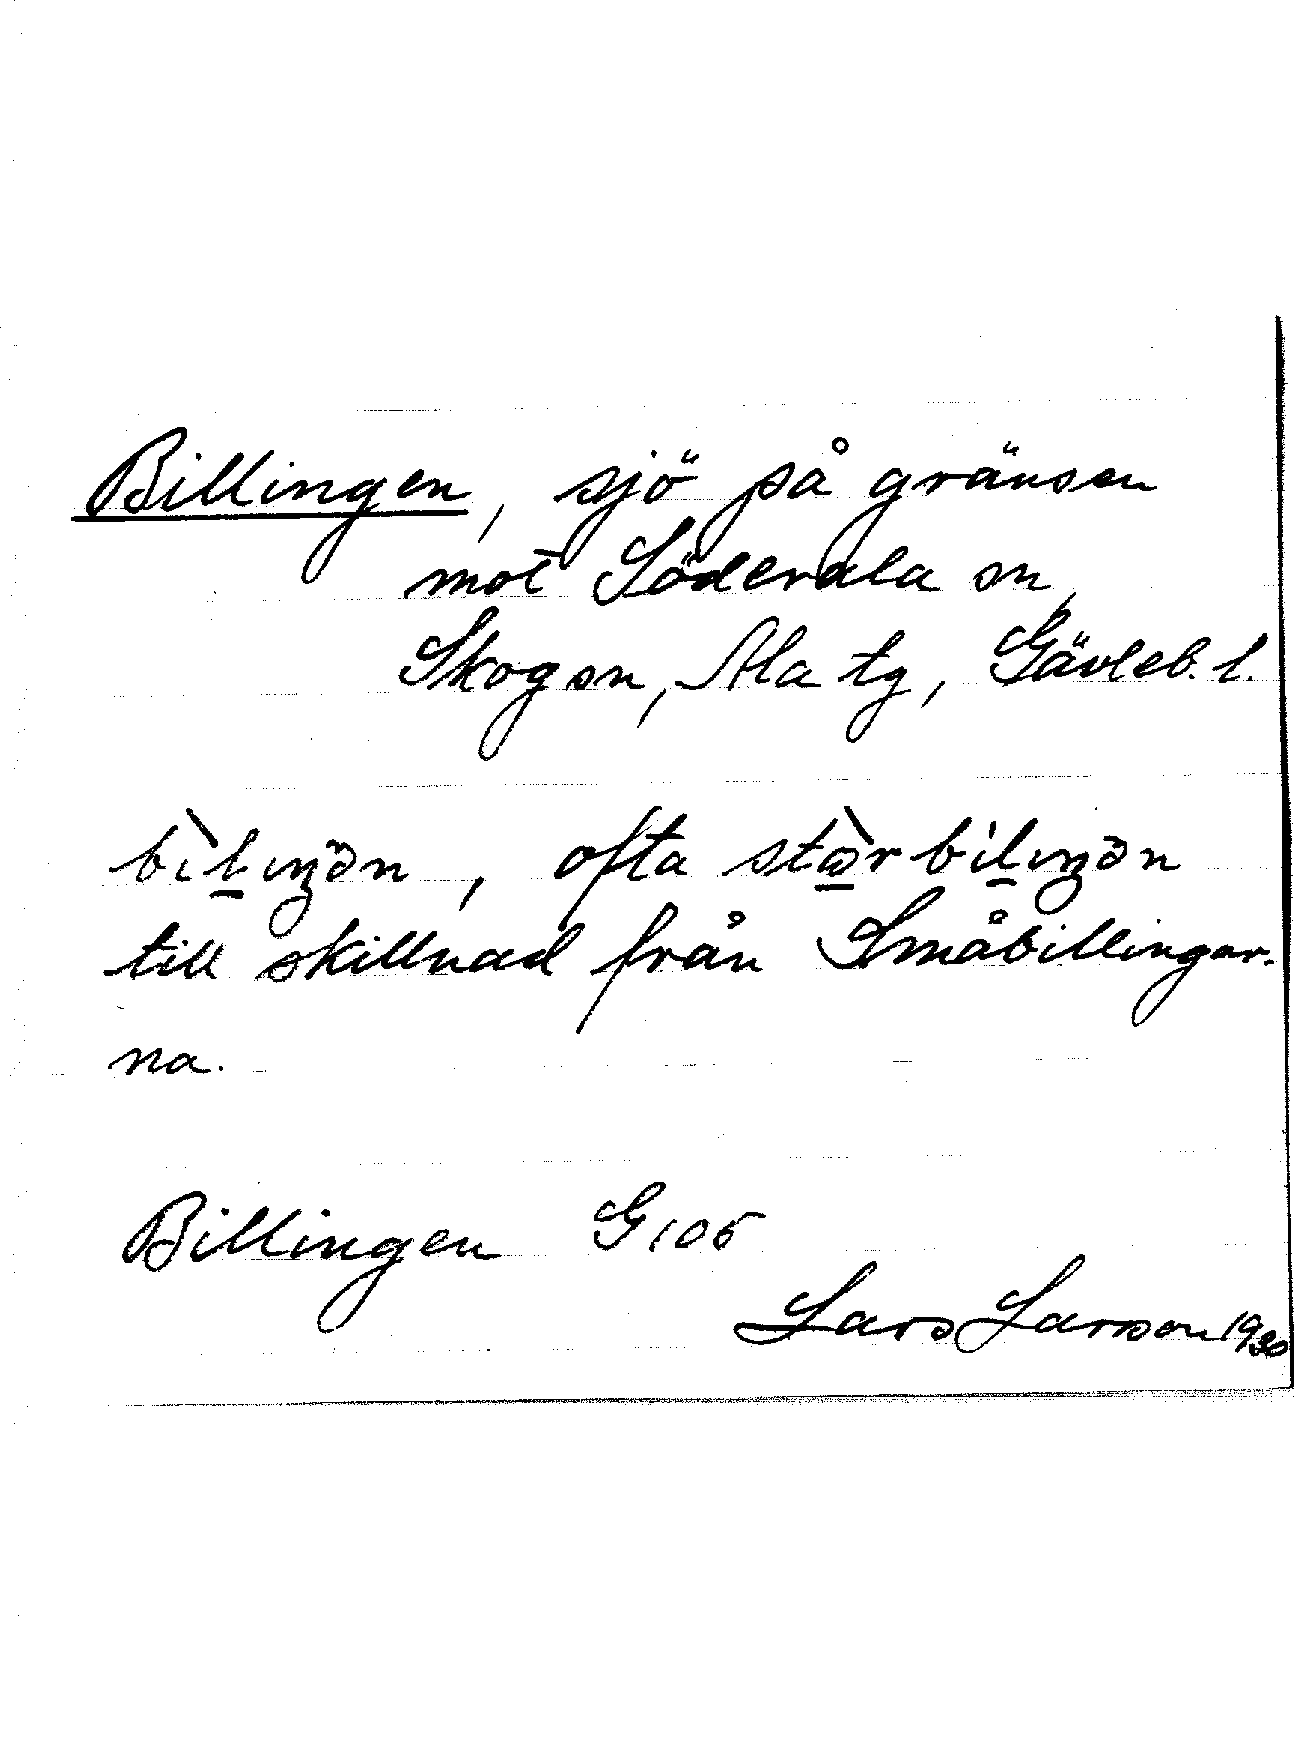 Billingen, sjö på gränsen
mot Söderala sn,
Skog sn, Ala tg, Gävleb. l.
bìl̲ıŋən, ofta stὼ̲rbíl̲ıŋən
till skillnad från Småbillingar-
na.
Billingen G105
Lars Larsson 1930